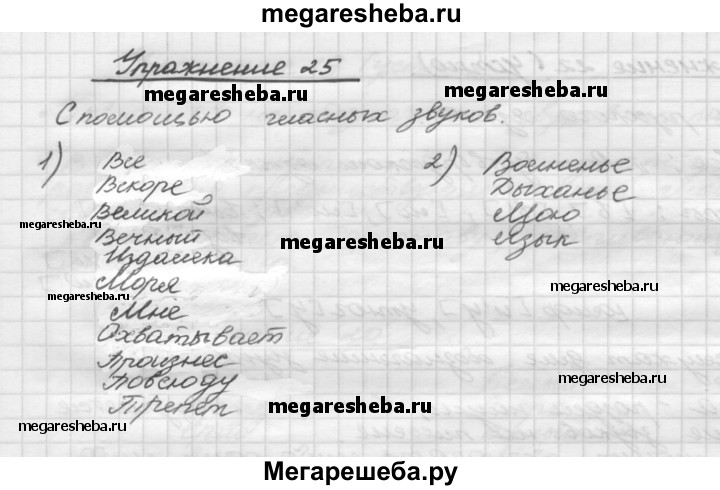 megaresheba.ru
Упражнение 25
megaresheba.ru
С помощью гласных звуков.
megaresheba.ru
1) Все
Вскоре
Великой
Вечный
Издалека
Моря
Мне
Охватывает
Произнес
Повсюду
Трепет
2) Волненье
Дыханье
Мою
Язык
megaresheba.ru
megaresheba.ru
megaresheba.ru
megaresheba.ru
megaresheba.ru
megaresheba.ru
Мегарешеба.ру